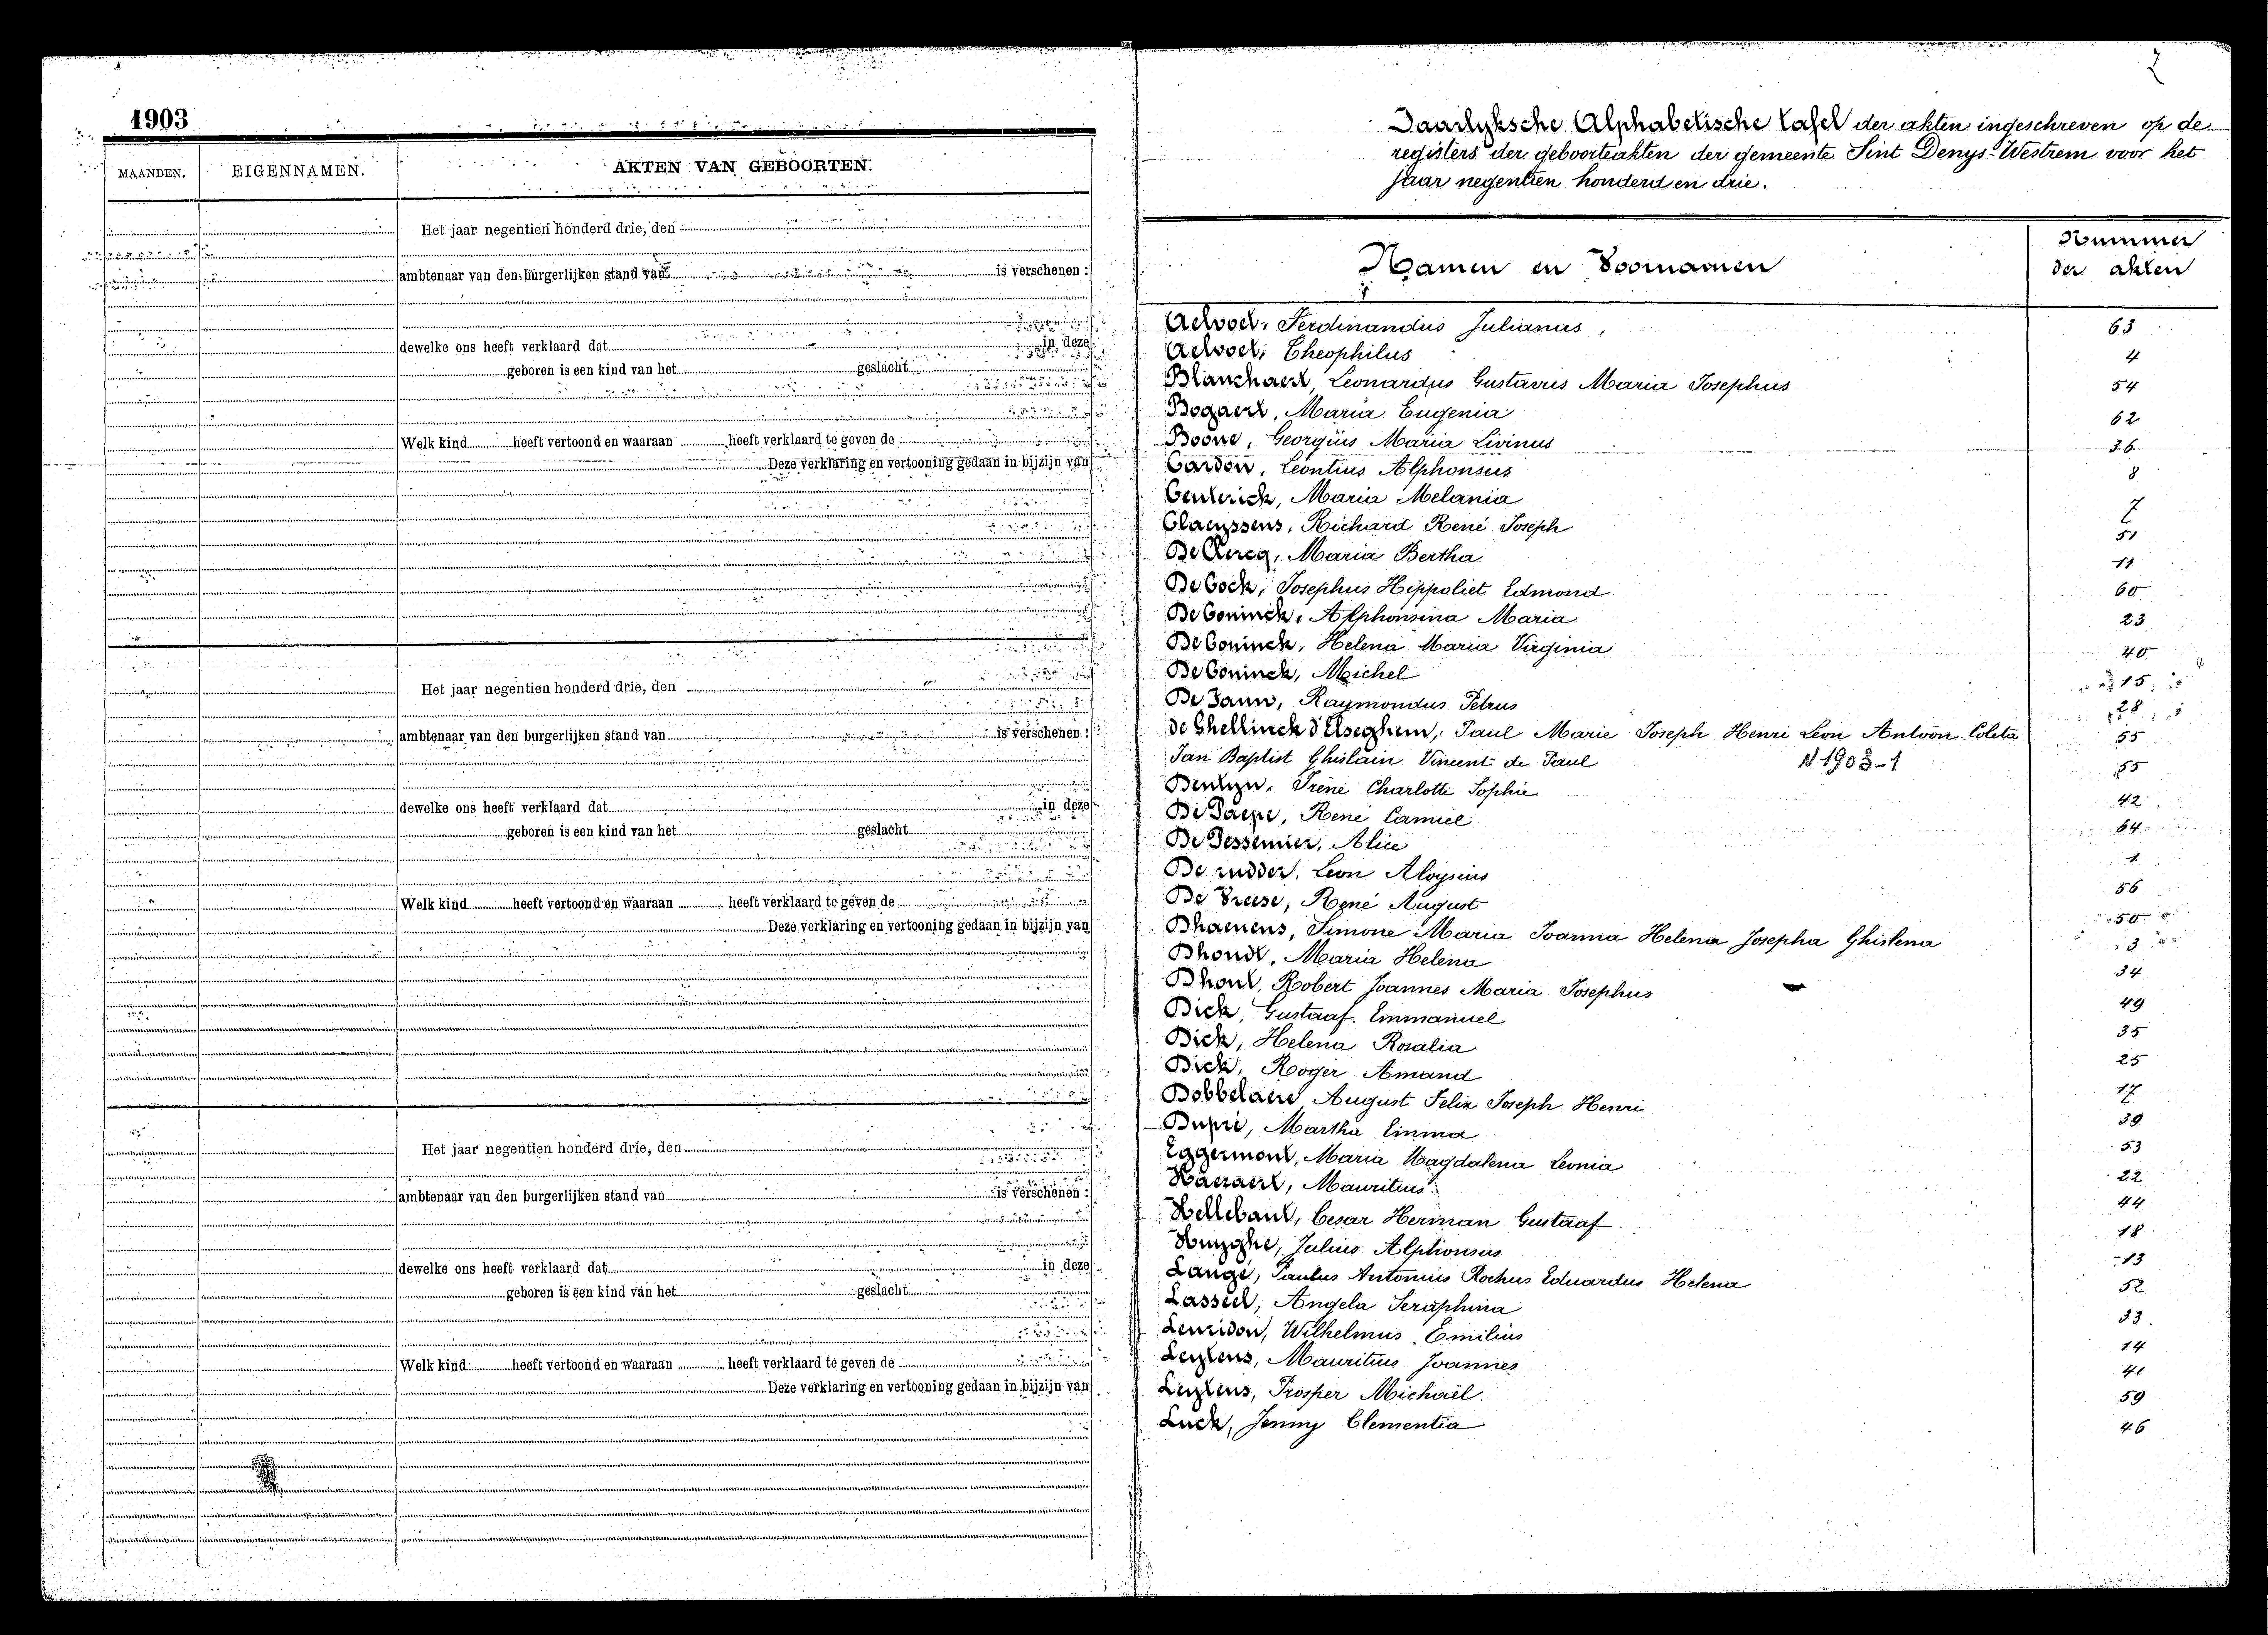 1903
MAANDEN. EIGENNAMEN. AKTEN VAN GEBOORTEN.
Het jaar negentien honderd drie, den
ambtenaar van den burgerlijken stand van is verschenen :
dewelke ons heeft verklaard dat in deze
geboren is een kind van het geslacht
Welk kind heeft vertoond en waaraan heeft verklaard te geven de
Deze verklaring en vertooning gedaan in bijzijn van
Het jaar negentien honderd drie, den
ambtenaar van den burgerlijken stand van is verschenen :
dewelke ons heeft verklaard dat in deze
geboren is een kind van het geslacht
Welk kind heeft vertoond en waaraan heeft verklaard te geven de
Deze verklaring en vertooning gedaan in bijzijn van
Het jaar negentien honderd drie, den
ambtenaar van den burgerlijken stand van is verschenen :
dewelke ons heeft verklaard dat in deze
geboren is een kind van het geslacht
Welk kind heeft vertoond en waaraan heeft verklaard te geven de
Deze verklaring en vertooning gedaan in bijzijn van
Jaarlyksche Alphabetische tafel der akten ingeschreven op de
registers der geboorteakten der gemeente Sint Denys-Westrem voor het
jaar negentien honderd en drie.
Namen en Voornamen Nummer
der akten
Aelvoet, Ferdinandus Julianus, 63
Aelvoet, Theophilus 4
Blanchaert, Leonardus Gustavus Maria Josephus 54
Bogaert, Maria Eugenia 62
Boone, Georgius Maria Livinus 36
Cardon, Leontius Alphonsus 8
Centerick, Maria Melania 7
Claeyssens, Richard René Joseph 51
De Clercq, Maria Bertha 11
De Cock, Josephus Hippoliet Edmond 60
De Coninck, Alphonsina Maria 23
De Coninck, Helena Maria Virginia 40
De Coninck, Michel 15
De Jann, Raymondus Petrus 28
de Ghellinck d'Elseghem, Paul Marie Joseph Henri Leon Antoon Coleta 55
Jan Baptist Ghislain Vincent de Paul N 1903-1 55
Dentyn, Irène Charlotte Sophie 42
De Paepe, René Camiel 64
De Pessemier, Alice 1
De rudder, Leon Aloysius 56
De Vreese, René August 50
Dhaenens, Simone Maria Joanna Helena Josepha Ghislena 3
Dhondt, Maria Helena 34
Dhont, Robert Joannes Maria Josephus 49
Dick, Gustaaf Emmanuel 35
Dick, Helena Rosalia 25
Dick, Roger Amand 17
Dobbelaere, August Felix Joseph Henri 39
Dupré, Martha Emma 53
Eggermont, Maria Magdalena Leonia 22
Haeraert, Mauritius 44
Hellebaut, Cesar Herman Gustaaf 18
Huyghe, Julius Alphonsus 13
Langé, Paulus Antonius Rochus Eduardus Helena 52
Lasseel, Angela Seraphina 33
Lenridon, Wilhelmus Emilius 14
Leytens, Mauritius Joannes 41
Leytens, Prosper Michaël 59
Luck, Jenny Clementia 46